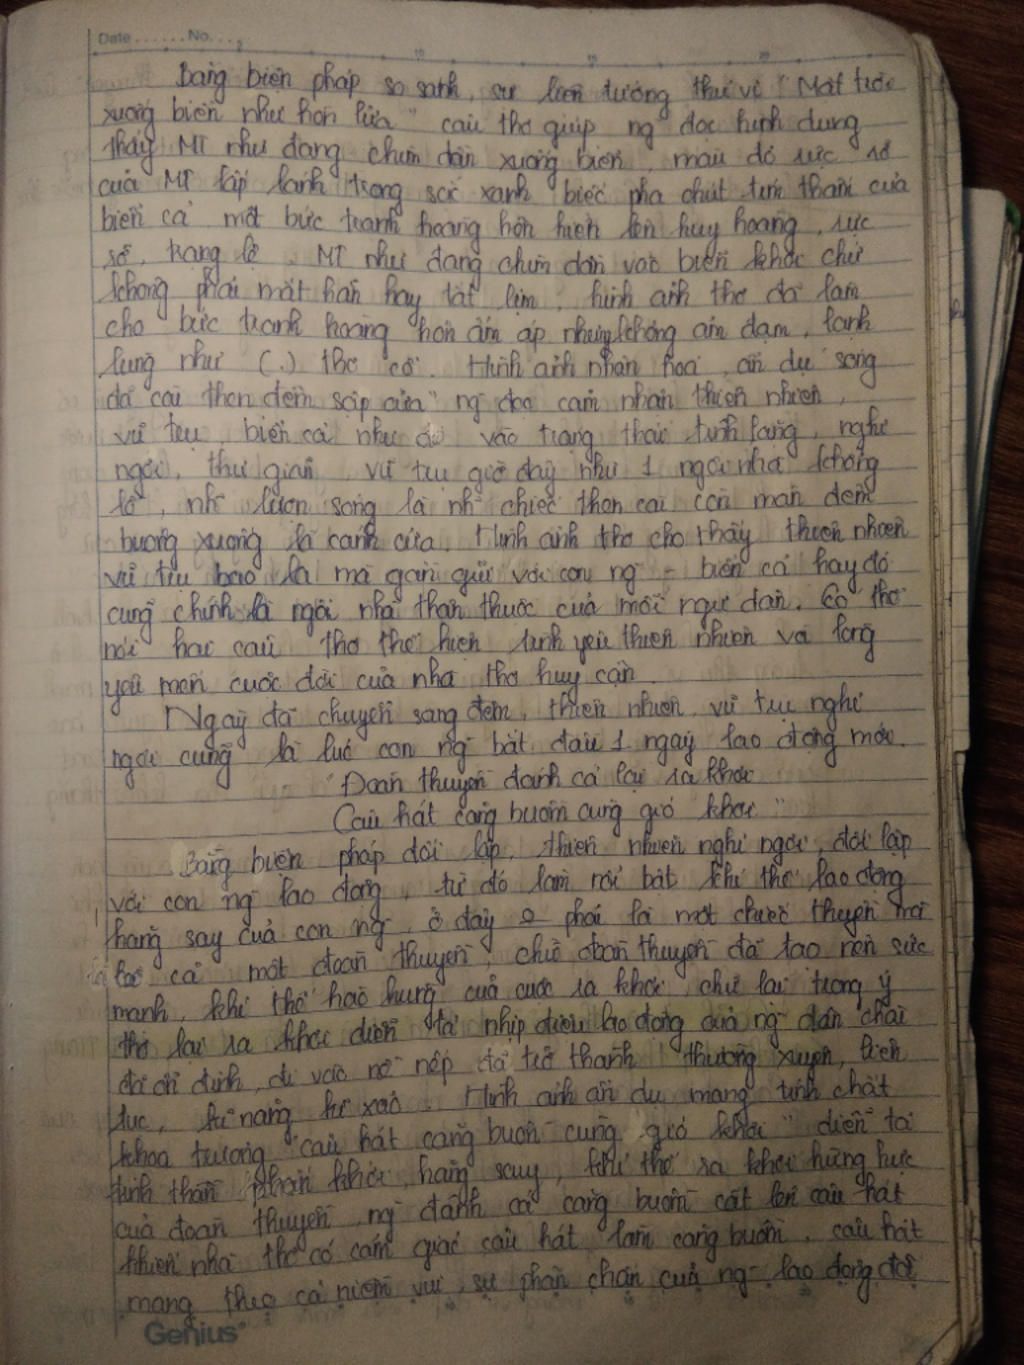 Date ...... No. ...
Bằng biện pháp so sánh, sự liên tưởng thú vị "Mặt trời
xuống biển như hòn lửa" câu thơ giúp ng đọc hình dung
thấy MT như đang chìm dần xuống biển, màu đỏ rực rỡ
của MT lấp lánh trong sắc xanh biếc pha chút tím thẫm của
biển cả một bức tranh hoàng hôn hiện lên huy hoàng, rực
rỡ, tráng lệ. MT như đang chìm dần vào biển khơi chứ
không phải mất hẳn hay tắt lịm, hình ảnh thơ đã làm
cho bức tranh hoàng hôn ấm áp nhưng không ảm đạm, lạnh
lùng như (.) thơ cổ. Hình ảnh nhân hóa, ẩn dụ "sóng
đã cài then đêm sập cửa" ng đọc cảm nhận thiên nhiên,
vũ trụ, biển cả như đi vào trạng thái tĩnh lặng, nghỉ
ngơi, thư giãn vũ trụ giờ đây như 1 ngôi nhà khổng
lồ, nh lượn sóng là nh chiếc then cài còn màn đêm
buông xuống là cánh cửa. Hình ảnh thơ cho thấy thiên nhiên
vũ trụ bao la mà gần gũi với con ng - biển cả hay đó
cũng chính là ngôi nhà thân thuộc của mỗi ngư dân. Có thể
nói hai câu thơ thể hiện tình yêu thiên nhiên và lòng
yêu mến cuộc đời của nhà thơ huy cận.
Ngày đã chuyển sang đêm, thiên nhiên, vũ trụ nghỉ
ngơi cũng là lúc con ng bắt đầu 1 ngày lao động mới.
"Đoàn thuyền đánh cá lại ra khơi
Câu hát căng buồm cùng gió khơi"
Bằng biện pháp đối lập, thiên nhiên nghỉ ngơi, đối lập
với con ng lao động, từ đó làm nổi bật khí thế lao động
hăng say của con ng, ở đây phải là một chiếc thuyền mà
là cả một đoàn thuyền, chữ đoàn thuyền đã tạo nên sức
mạnh, khí thế hào hùng của cuộc ra khơi, chữ lại trong ý
thơ lại ra khơi diễn tả nhịp điệu lao động của ng dân chài
đã ổn định, đi vào nề nếp đã trở thành thường xuyên, liên
tục, kĩ năng kĩ xảo. Hình ảnh ẩn dụ mang tính chất
khoa trương "câu hát căng buồm cùng gió khơi" diễn tả
tinh thần phấn khởi, hăng say, khí thế ra khơi hừng hực
của đoàn thuyền, ng đánh cá căng buồm cất lên câu hát
khiến nhà thơ có cảm giác câu hát làm căng buồm, câu hát
mang theo cả niềm vui, sự phấn chấn của ng lao động đã
Genius